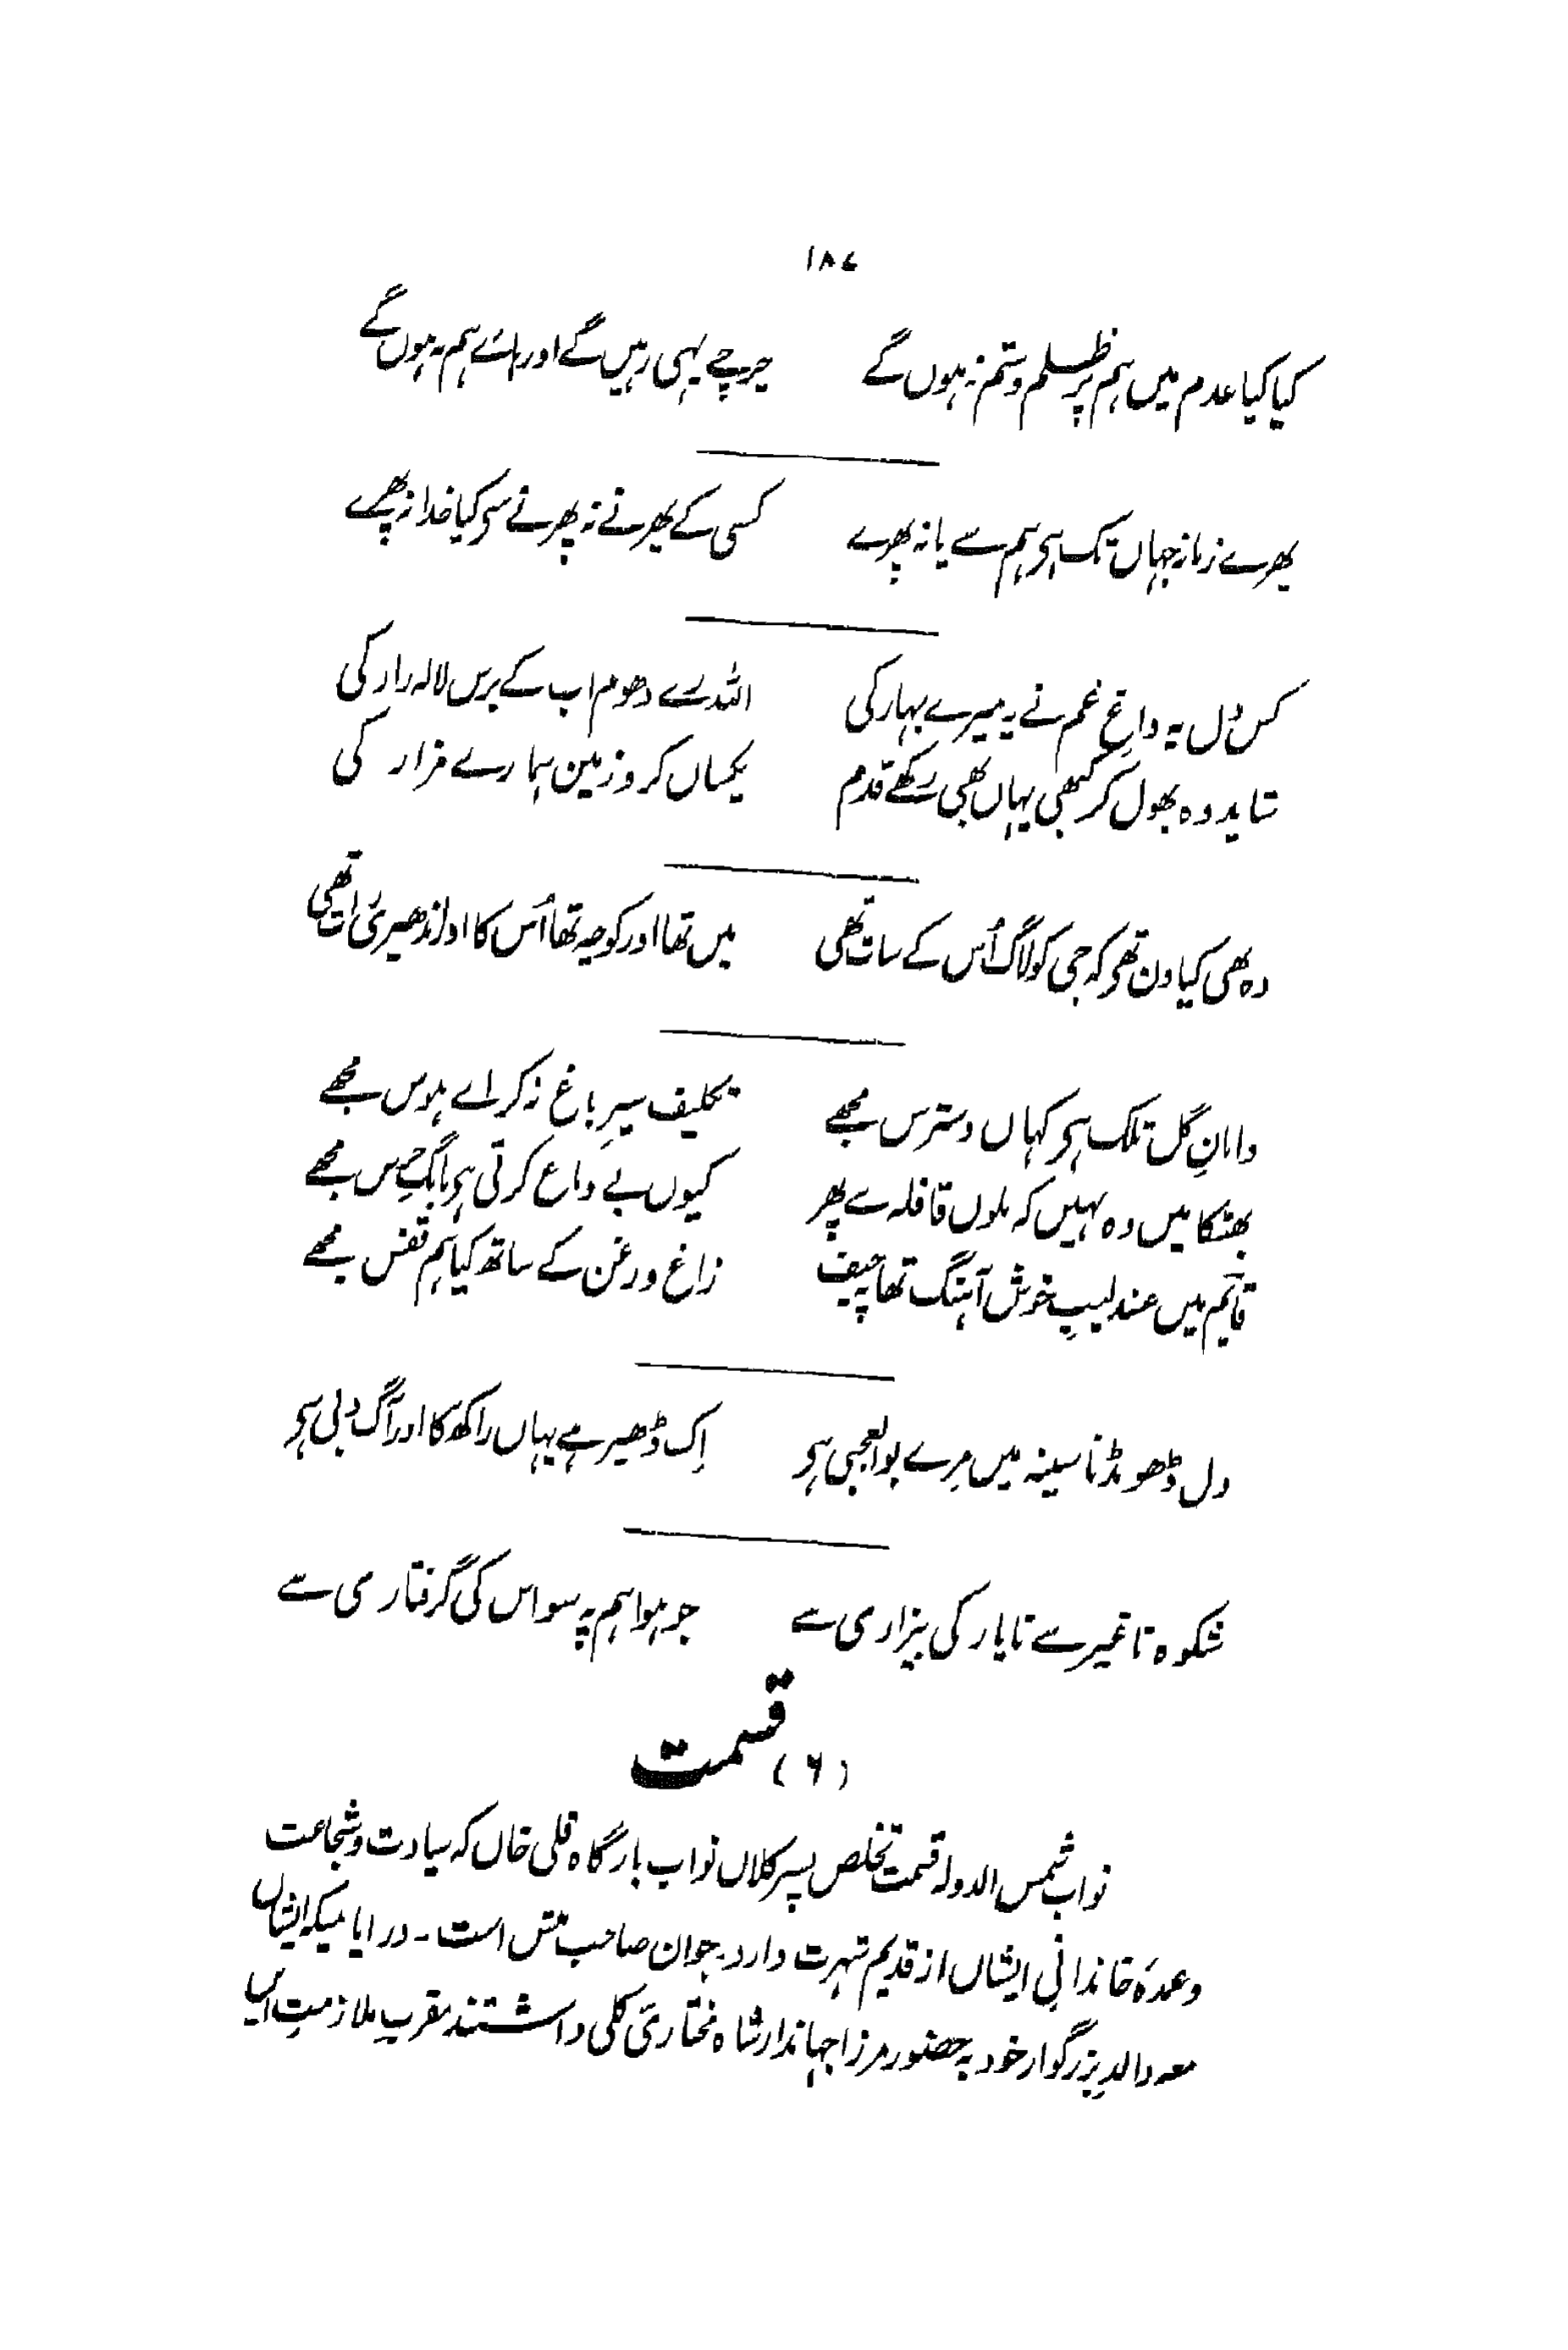 ۱۸۷
کیا کیا عدم میں ہم پر ظلم و ستم نہ ہوں گے چرچے یہی رہیں گے اور ہائے ہم نہ ہوں گے
پھرے زمانہ جہاں تک ہی ہم سے یا نہ پھرے کسی کے پھرنے نہ پھرنے سی کیا خدا نہ پھرے
کس دل پہ داغِ غم نے یہ میرے بہار کی اللہ رے دھوم اب کے برس لالہ زار کی
شاید وہ بھول کر کبھی یہاں بھی رکھے قدم یکساں کرو زمین ہمارے مزار کی
وہ بھی کیا دن تھی کہ جی کو لاگ اُس کے سات تھی میں تھا اور کوچہ تھا اُس کا اور اندھیری رات تھی
دامانِ گل تلک ہی کہاں دسترس مجھے تکلیف سیرِ باغ نہ کر اے ہوس مجھے
بھٹکا میں وہ نہیں کہ ملوں قافلہ سے پھر کیوں بے دماغ کرتی ہی بانگِ جرس مجھے
قائم میں عندلیبِ خوش آہنگ تھا حیف زاغ و زغن کے ساتھ کیا ہم قفس مجھے
دل ڈھونڈنا سینہ میں مرے بوالعجبی ہی اِک ڈھیر ہے یہاں راکھ کا اور آگ دبی ہی
شکوہ نا غیر سے نا یار کی بیزاری سے جو ہوا ہم پہ سو اس کی گرفتاری سے
(۶) قسمت
نواب شمس الدولہ قسمت تخلص پسر کلاں نواب بارگاہ قلی خاں کہ سیادت و شجاعت
و عمدۂ خاندانی ایشاں از قدیم شہرت دارد۔ جوان صاحب مشق است۔ در ایامیکہ ایشاں
معہ والد بزرگوار خود بہ حضور مرزا جہاندار شاہ مختاریٔ کلی داشتند مقرب ملازمتِ ایں